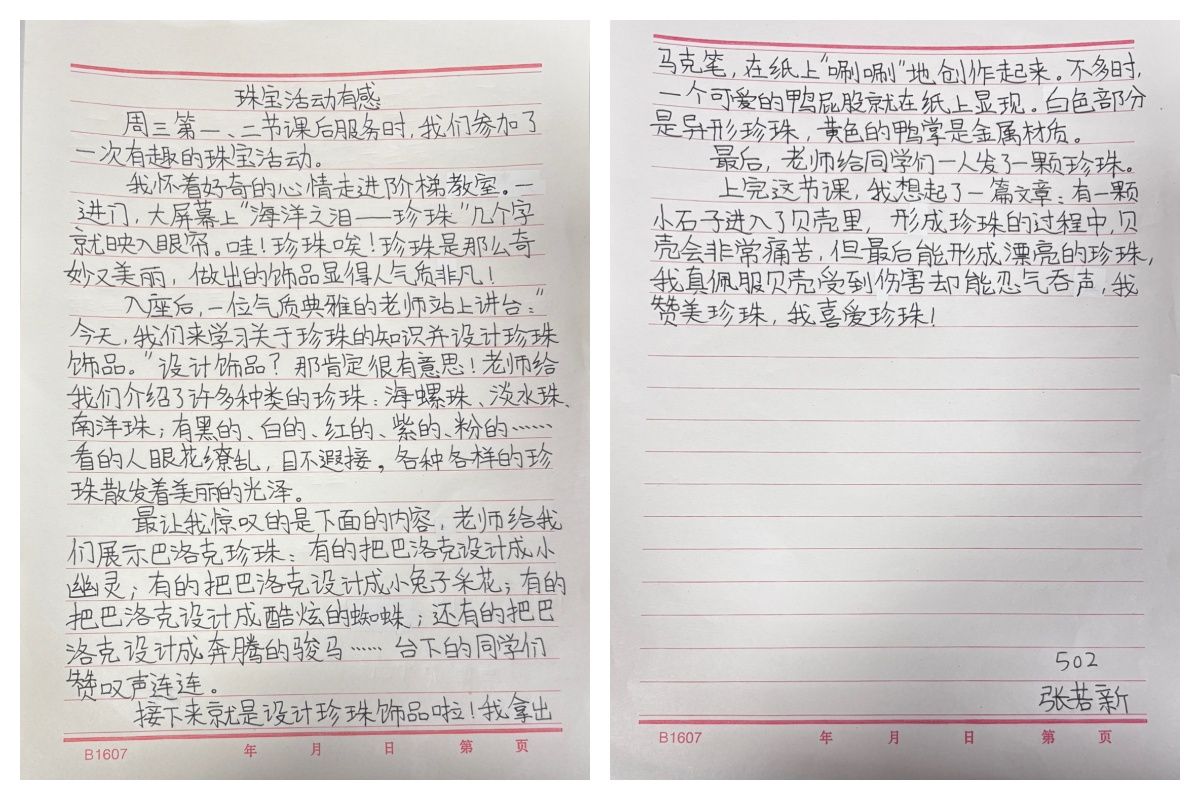 珠宝活动有感
周三第一、二节课后服务时，我们参加了
一次有趣的珠宝活动。
我怀着好奇的心情走进阶梯教室。一
进门，大屏幕上"海洋之泪——珍珠"几个字
就映入眼帘。哇！珍珠唉！珍珠是那么奇
妙又美丽，做出的饰品显得人气质非凡！
入座后，一位气质典雅的老师站上讲台："
今天，我们来学习关于珍珠的知识并设计珍珠
饰品。"设计饰品？那肯定很有意思！老师给
我们介绍了许多种类的珍珠：海螺珠、淡水珠、
南洋珠；有黑的、白的、红的、紫的、粉的……
看的人眼花缭乱，目不遐接。各种各样的珍
珠散发着美丽的光泽。
最让我惊叹的是下面的内容，老师给我
们展示巴洛克珍珠：有的把巴洛克设计成小
幽灵；有的把巴洛克设计成小兔子采花；有的
把巴洛克设计成酷炫的蜘蛛；还有的把巴
洛克设计成奔腾的骏马……台下的同学们
赞叹声连连。
接下来就是设计珍珠饰品啦！我拿出
B1607 年 月 日 第 页
马克笔，在纸上"唰唰"地创作起来。不多时，
一个可爱的鸭屁股就在纸上显现。白色部分
是异形珍珠，黄色的鸭掌是金属材质。
最后，老师给同学们一人发了一颗珍珠。
上完这节课，我想起了一篇文章：有一颗
小石子进入了贝壳里，形成珍珠的过程中，贝
壳会非常痛苦，但最后能形成漂亮的珍珠，
我真佩服贝壳受到伤害却能忍气吞声，我
赞美珍珠，我喜爱珍珠！
502
张若新
B1607 年 月 日 第 页